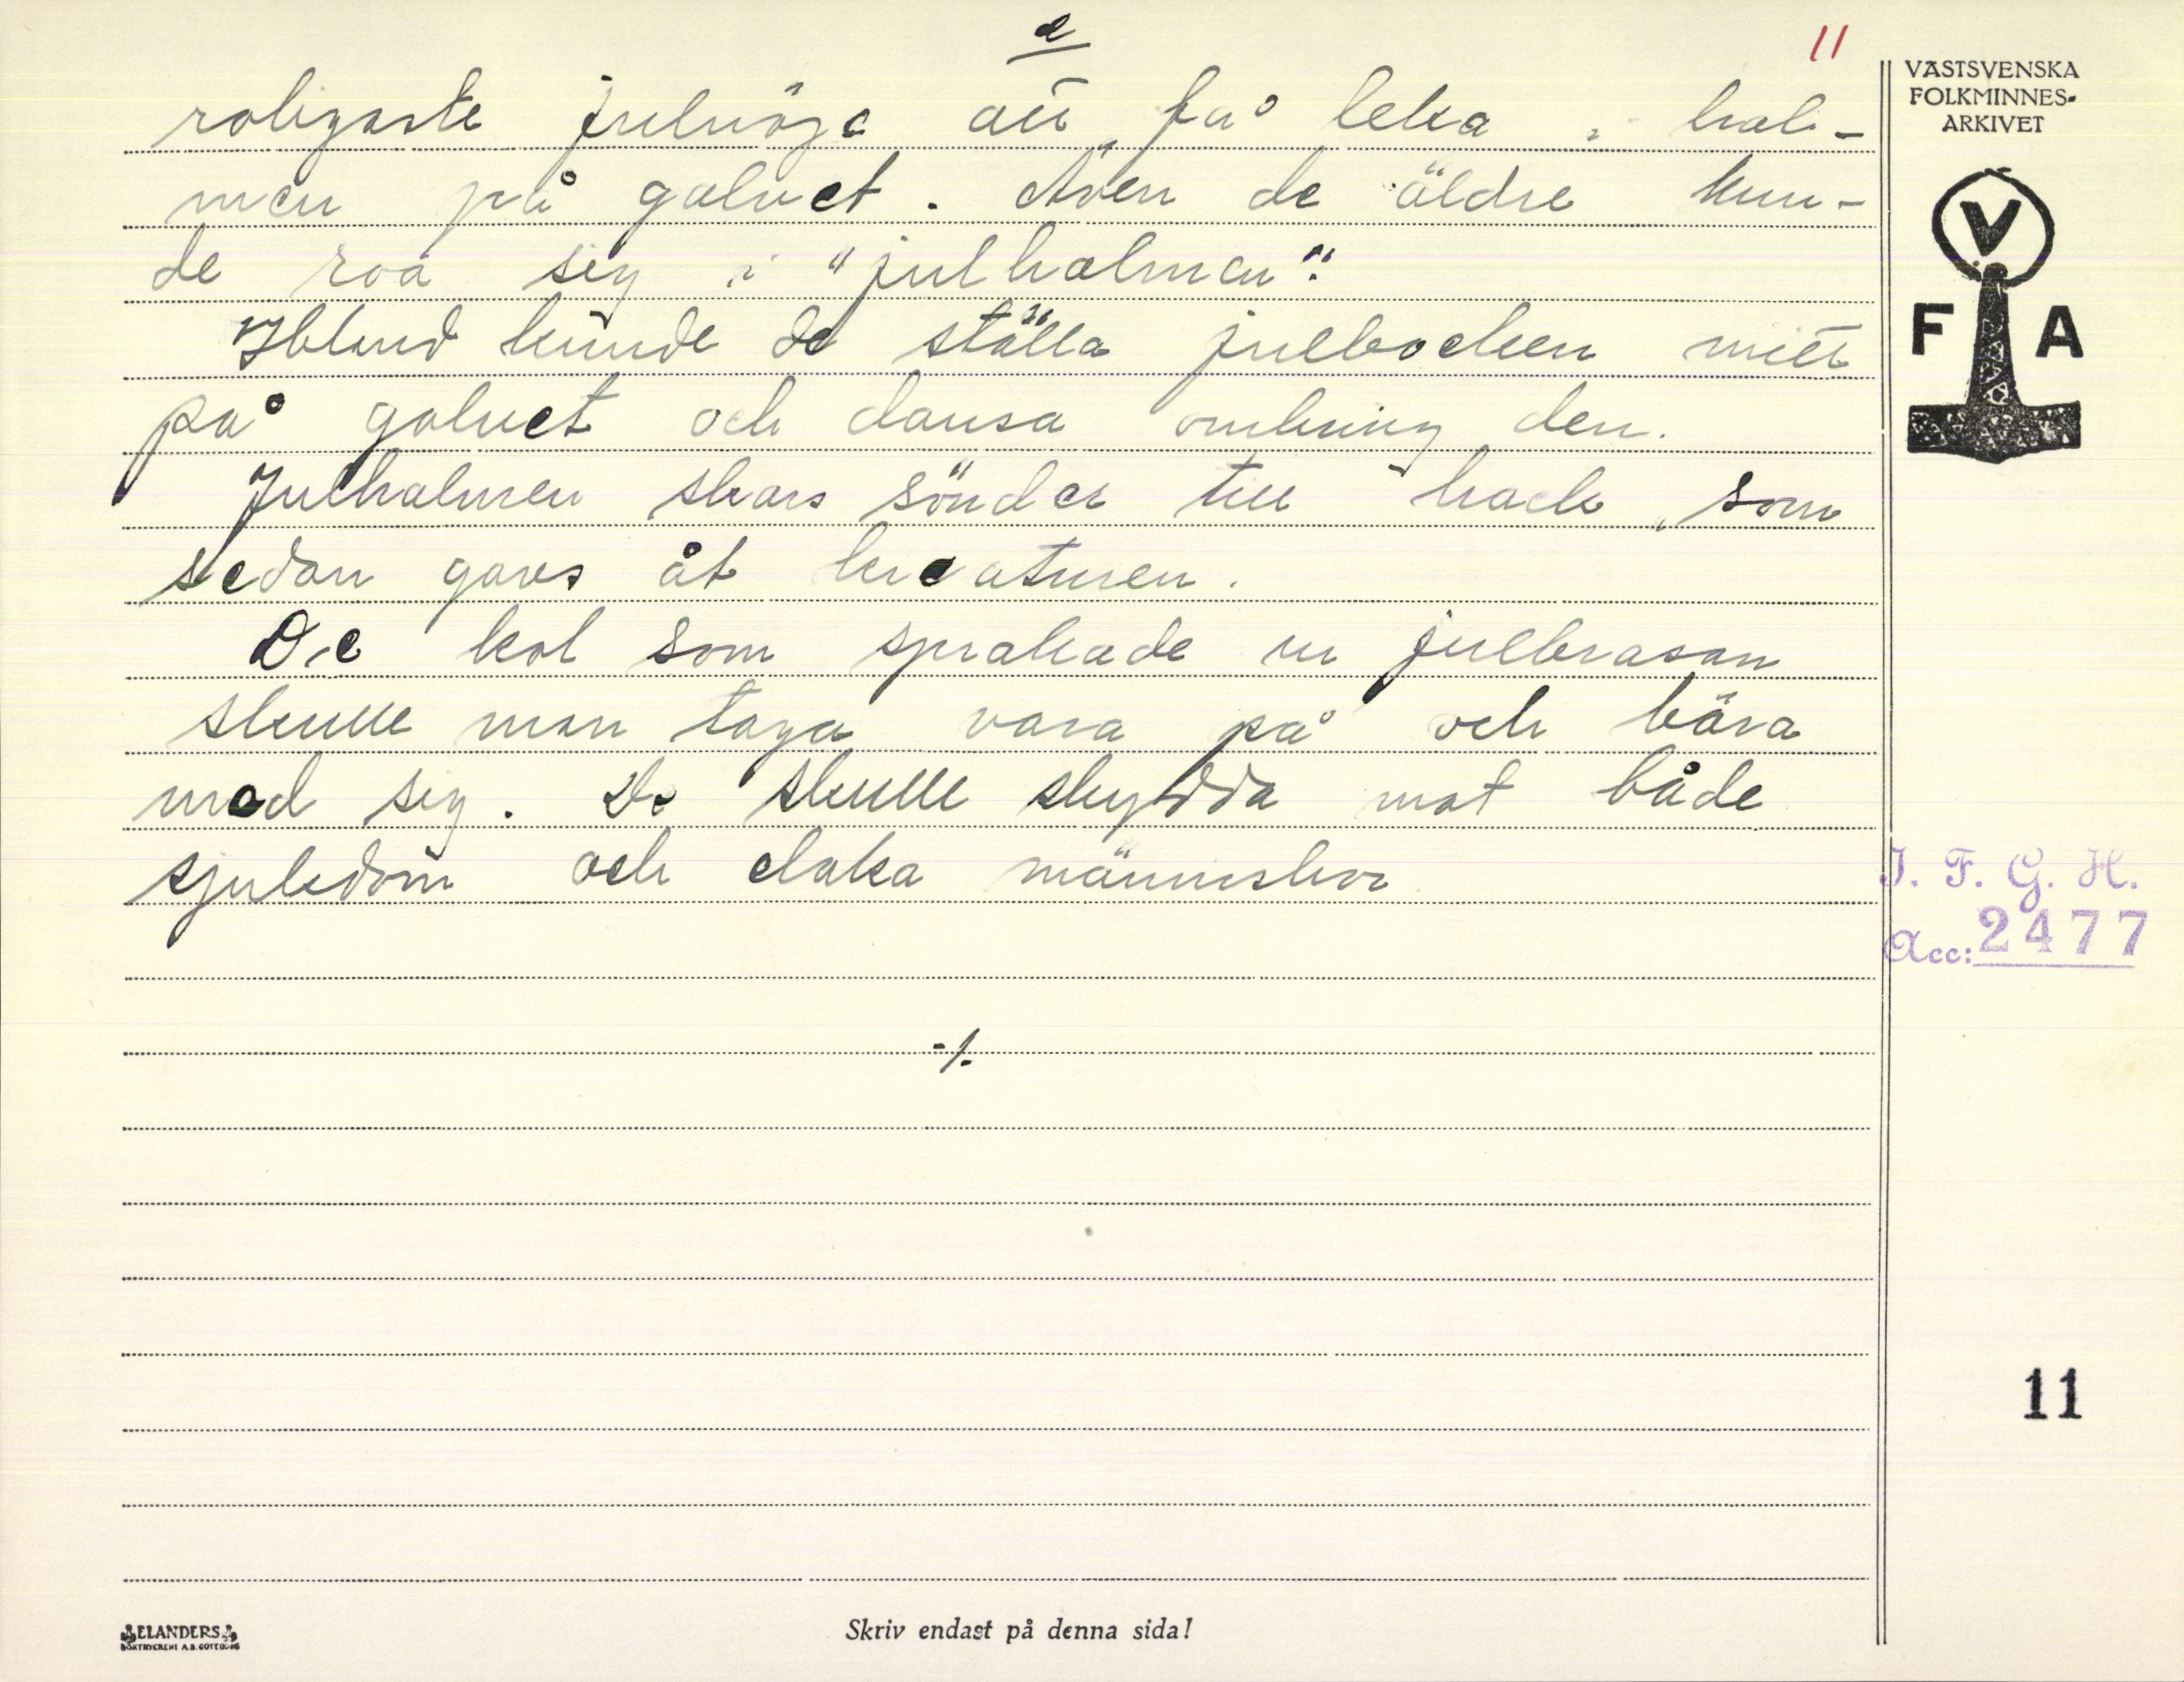 2
11
roligaste julnöje att få leka i hal-
men på golvet. Även de äldre kun-
de roa sig i "julhalmen".
Ibland kunde de ställa julbocken mitt
på golvet och dansa omkring den.
Julhalmen skars sönder till hack som
sedan gavs åt kreaturen.
De kol som sprakade ur julbrasan
skulle man taga vara på och bära
med sig. De skulle skydda mot både
sjukdom och elaka människor
-/.
VÄSTSVENSKA
FOLKMINNES-
ARKIVET
V
F A
I. F. G. H.
Acc: 2477
11
ELANDERS
BOKTRYCKERI A.B. GÖTEBORG
Skriv endast på denna sida!